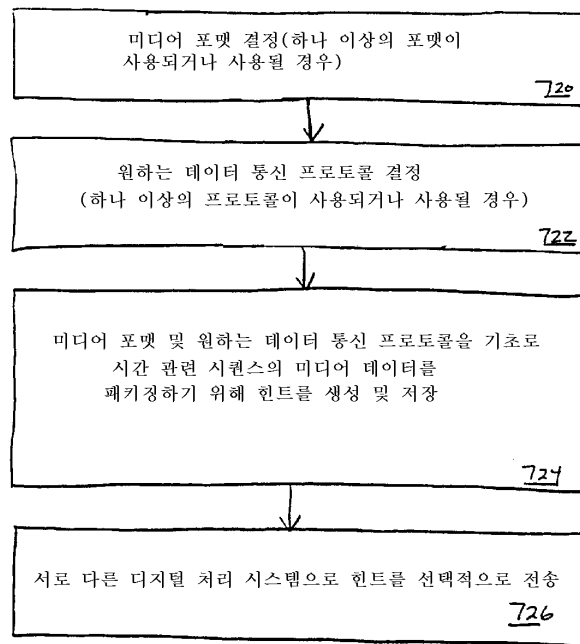 미디어 포맷 결정(하나 이상의 포맷이
사용되거나 사용될 경우)
720
원하는 데이터 통신 프로토콜 결정
(하나 이상의 프로토콜이 사용되거나 사용될 경우)
722
미디어 포맷 및 원하는 데이터 통신 프로토콜을 기초로
시간 관련 시퀀스의 미디어 데이터를
패키징하기 위해 힌트를 생성 및 저장
724
서로 다른 디지털 처리 시스템으로 힌트를 선택적으로 전송
726